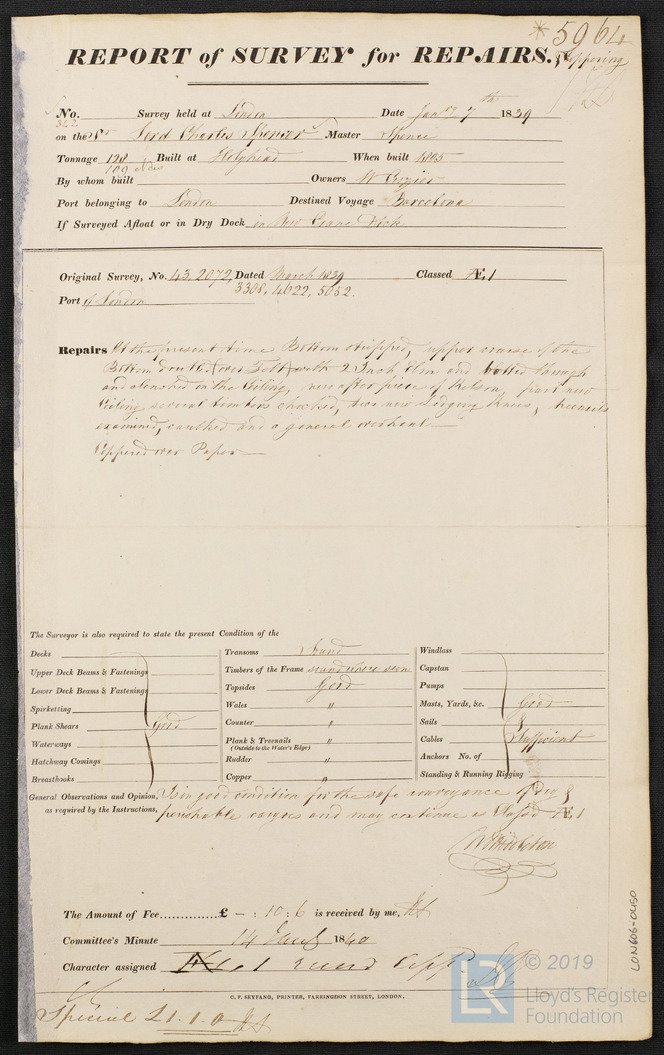 * 5964
REPORT of SURVEY for REPAIRS.
No. Survey held at London Date Jany 7th 1839
342
on the Sr Lord Charles Spencer Master Spence
Tonnage 128 Built at Holyhead When built 1805
109 New
By whom built Owners W Crozier
Port belonging to London Destined Voyage Barcelona
If Surveyed Afloat or in Dry Dock in New Crane Dock
Original Survey, No. 43,2072, Dated March 1834 Classed Æ1
3308, 4622, 5052.
Port of London
Repairs At the present time Bottom stripped, upper course of the
Bottom doubled over Felt with 2 Inch Elm and bolted through
and clenched on the Ceiling, new after piece of Kelson, part new
Ceiling several timbers chocked, two new Lodging Knees, treenails
examined, caulked and a general overhaul
Coppered over Paper
The Surveyor is also required to state the present Condition of the
Decks
Upper Deck Beams & Fastenings
Lower Deck Beams & Fastenings
Spirketting
Plank Shears Good
Waterways
Hatchway Comings
Breasthooks
Transoms Sound
Timbers of the Frame sound where seen
Topsides Good
Wales "
Counter "
Plank & Treenails "
(Outside to the Water's Edge)
Rudder "
Copper "
Windlass
Capstan
Pumps
Masts, Yards, &c. Good
Sails
Cables Sufficient
Anchors No. of
Standing & Running Rigging
General Observations and Opinion, Is in good condition for the safe conveyance of Dry &
as required by the Instructions, perishable cargoes and may continue as Class'd Æ1
The Amount of Fee.............. £ — : 10 : 6 is received by me,
Committee's Minute 14 Jany 1840
Character assigned
C. F. SEYFANG, PRINTER, FARRINGDON STREET, LONDON.
Special £1.1.0
LON606-0450
LR
© 2019
Lloyd's Register
Foundation